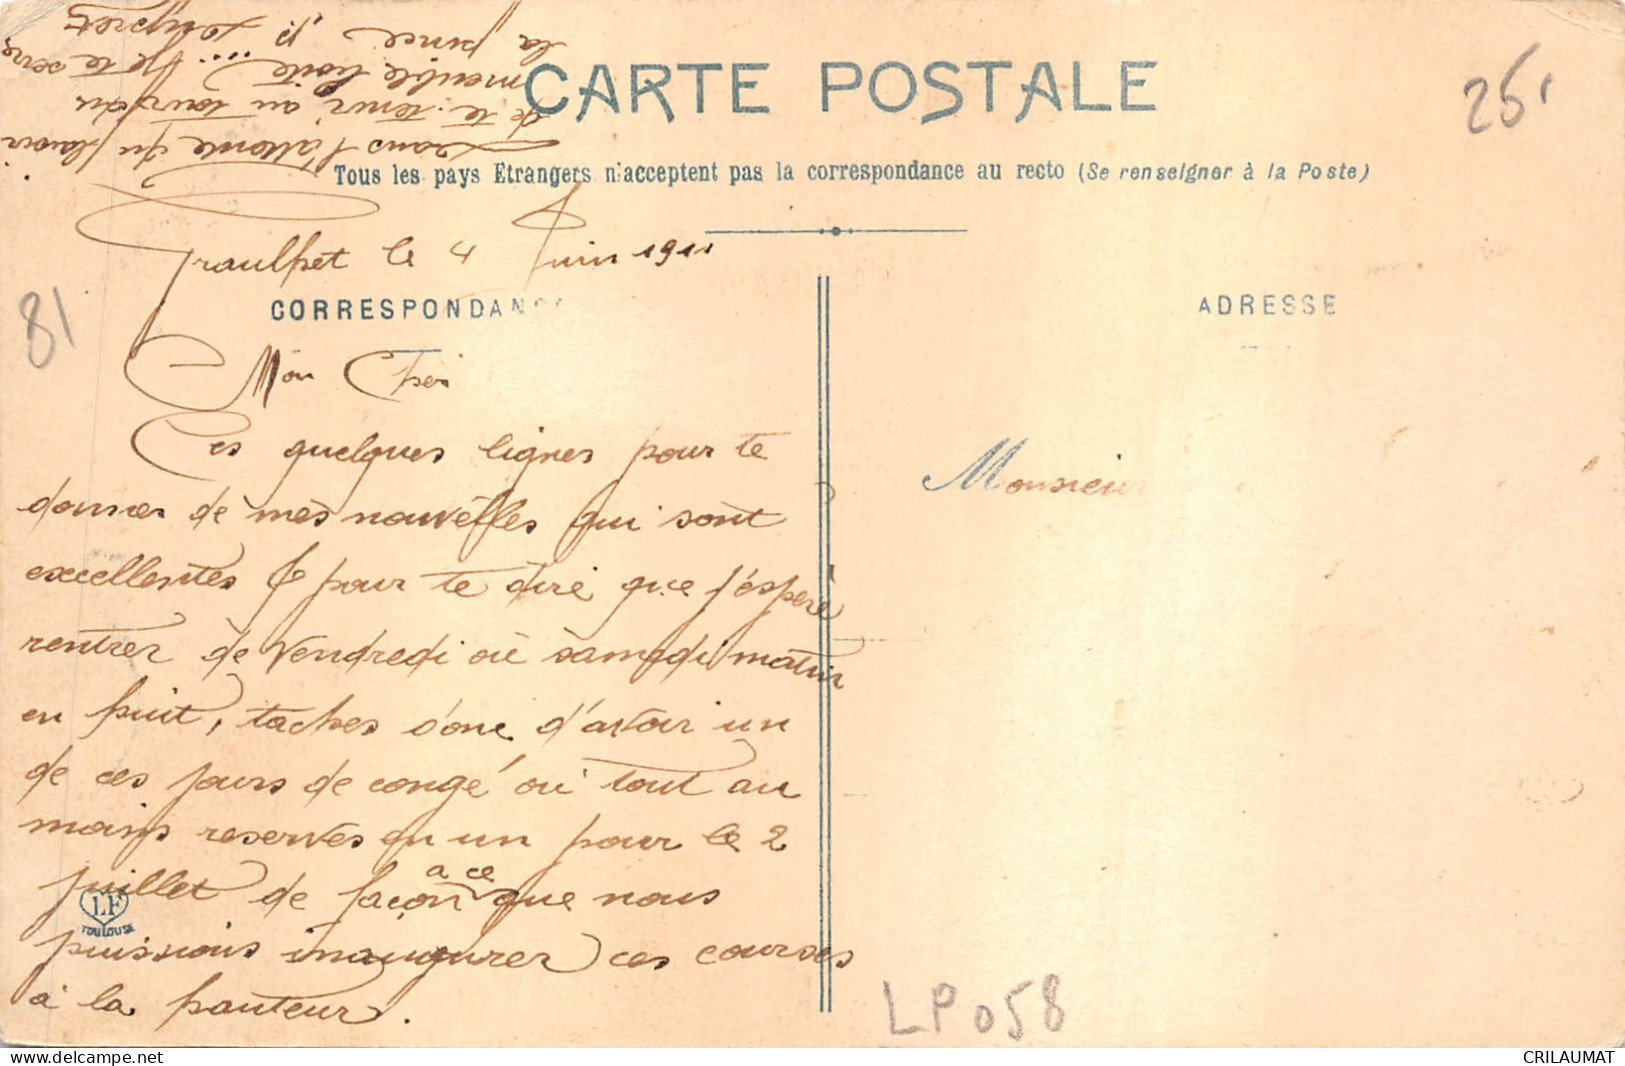 CARTE POSTALE
Tous les pays Etrangers n'acceptent pas la correspondance au recto (Se renseigner à la Poste)
25
81
Graulhet le 4 Juin 1911
CORRESPONDANCE
ADRESSE
Mon Cher
Ces quelques lignes pour te
donner de mes nouvelles qui sont
excellentes & pour te dire que j'espère
rentrer de Vendredi où samedi matin
en huit, taches donc d'avoir un
de ces jours de congé ou tout au
moins reserves en un pour le 2
juillet de façon a ce que nous
puissions inaugurer ces courses
à la hauteur.
Monsieur
Dans l'attente du plaisir
de te tenir au tour du
meuble boite ... Je te serre
la pince
LF
TOULOUSE
LP058
CRILAUMAT